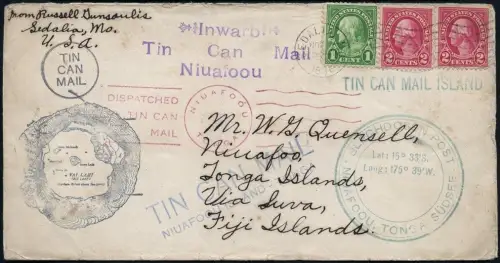 from Russell Gunsaulis
Sedalia, Mo.
U. S. A.
TIN
CAN
MAIL
"Inward"
Tin Can Mail
Niuafoou
1 CENT 1
2 CENTS 2
2 CENTS 2
TIN CAN MAIL ISLAND
DISPATCHED
TIN CAN
MAIL
NIUAFOOU
Mr. W. G. Quensell,
Niuafoo,
Tonga Islands,
Via Suva,
Fiji Islands.
TIN CAN
NIUAFOOU
POST
Lat: 15° 33' S.
Long: 175° 39' W.
NIUAFOOU, TONGA, SÜDSEE